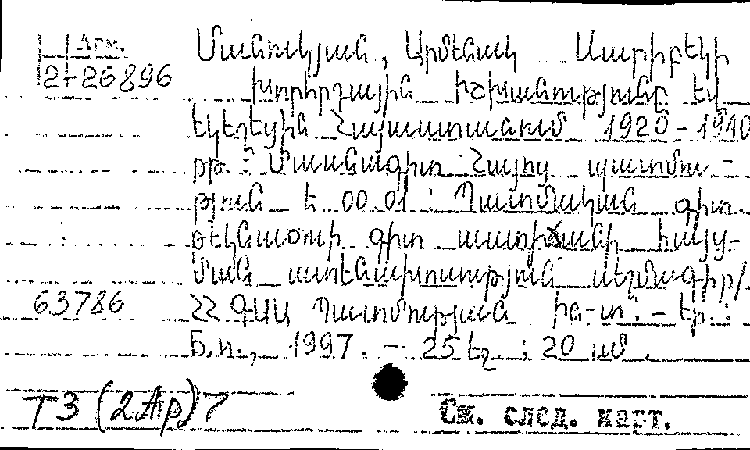 Арм.
2-26896
Մանուկյան, Արմենակ Սարիբեկի
Խորհրդային իշխանությունը եվ
եկեղեցին Հայաստանում 1920-1940
թթ.: Մասնագիտ. Հայոց պատմու-
թյուն Է. 00.01: Պատմական գիտ.
թեկնածուի գիտ. աստիճանի հայց-
ման ատենախոսության սեղմագիր/
63786 ՀՀ ԳԱԱ Պատմության ին-տ. - Եր.:
Б.и., 1997. - 25 էջ; 20 սմ.
Т3(2Ар)7
См. след. карт.